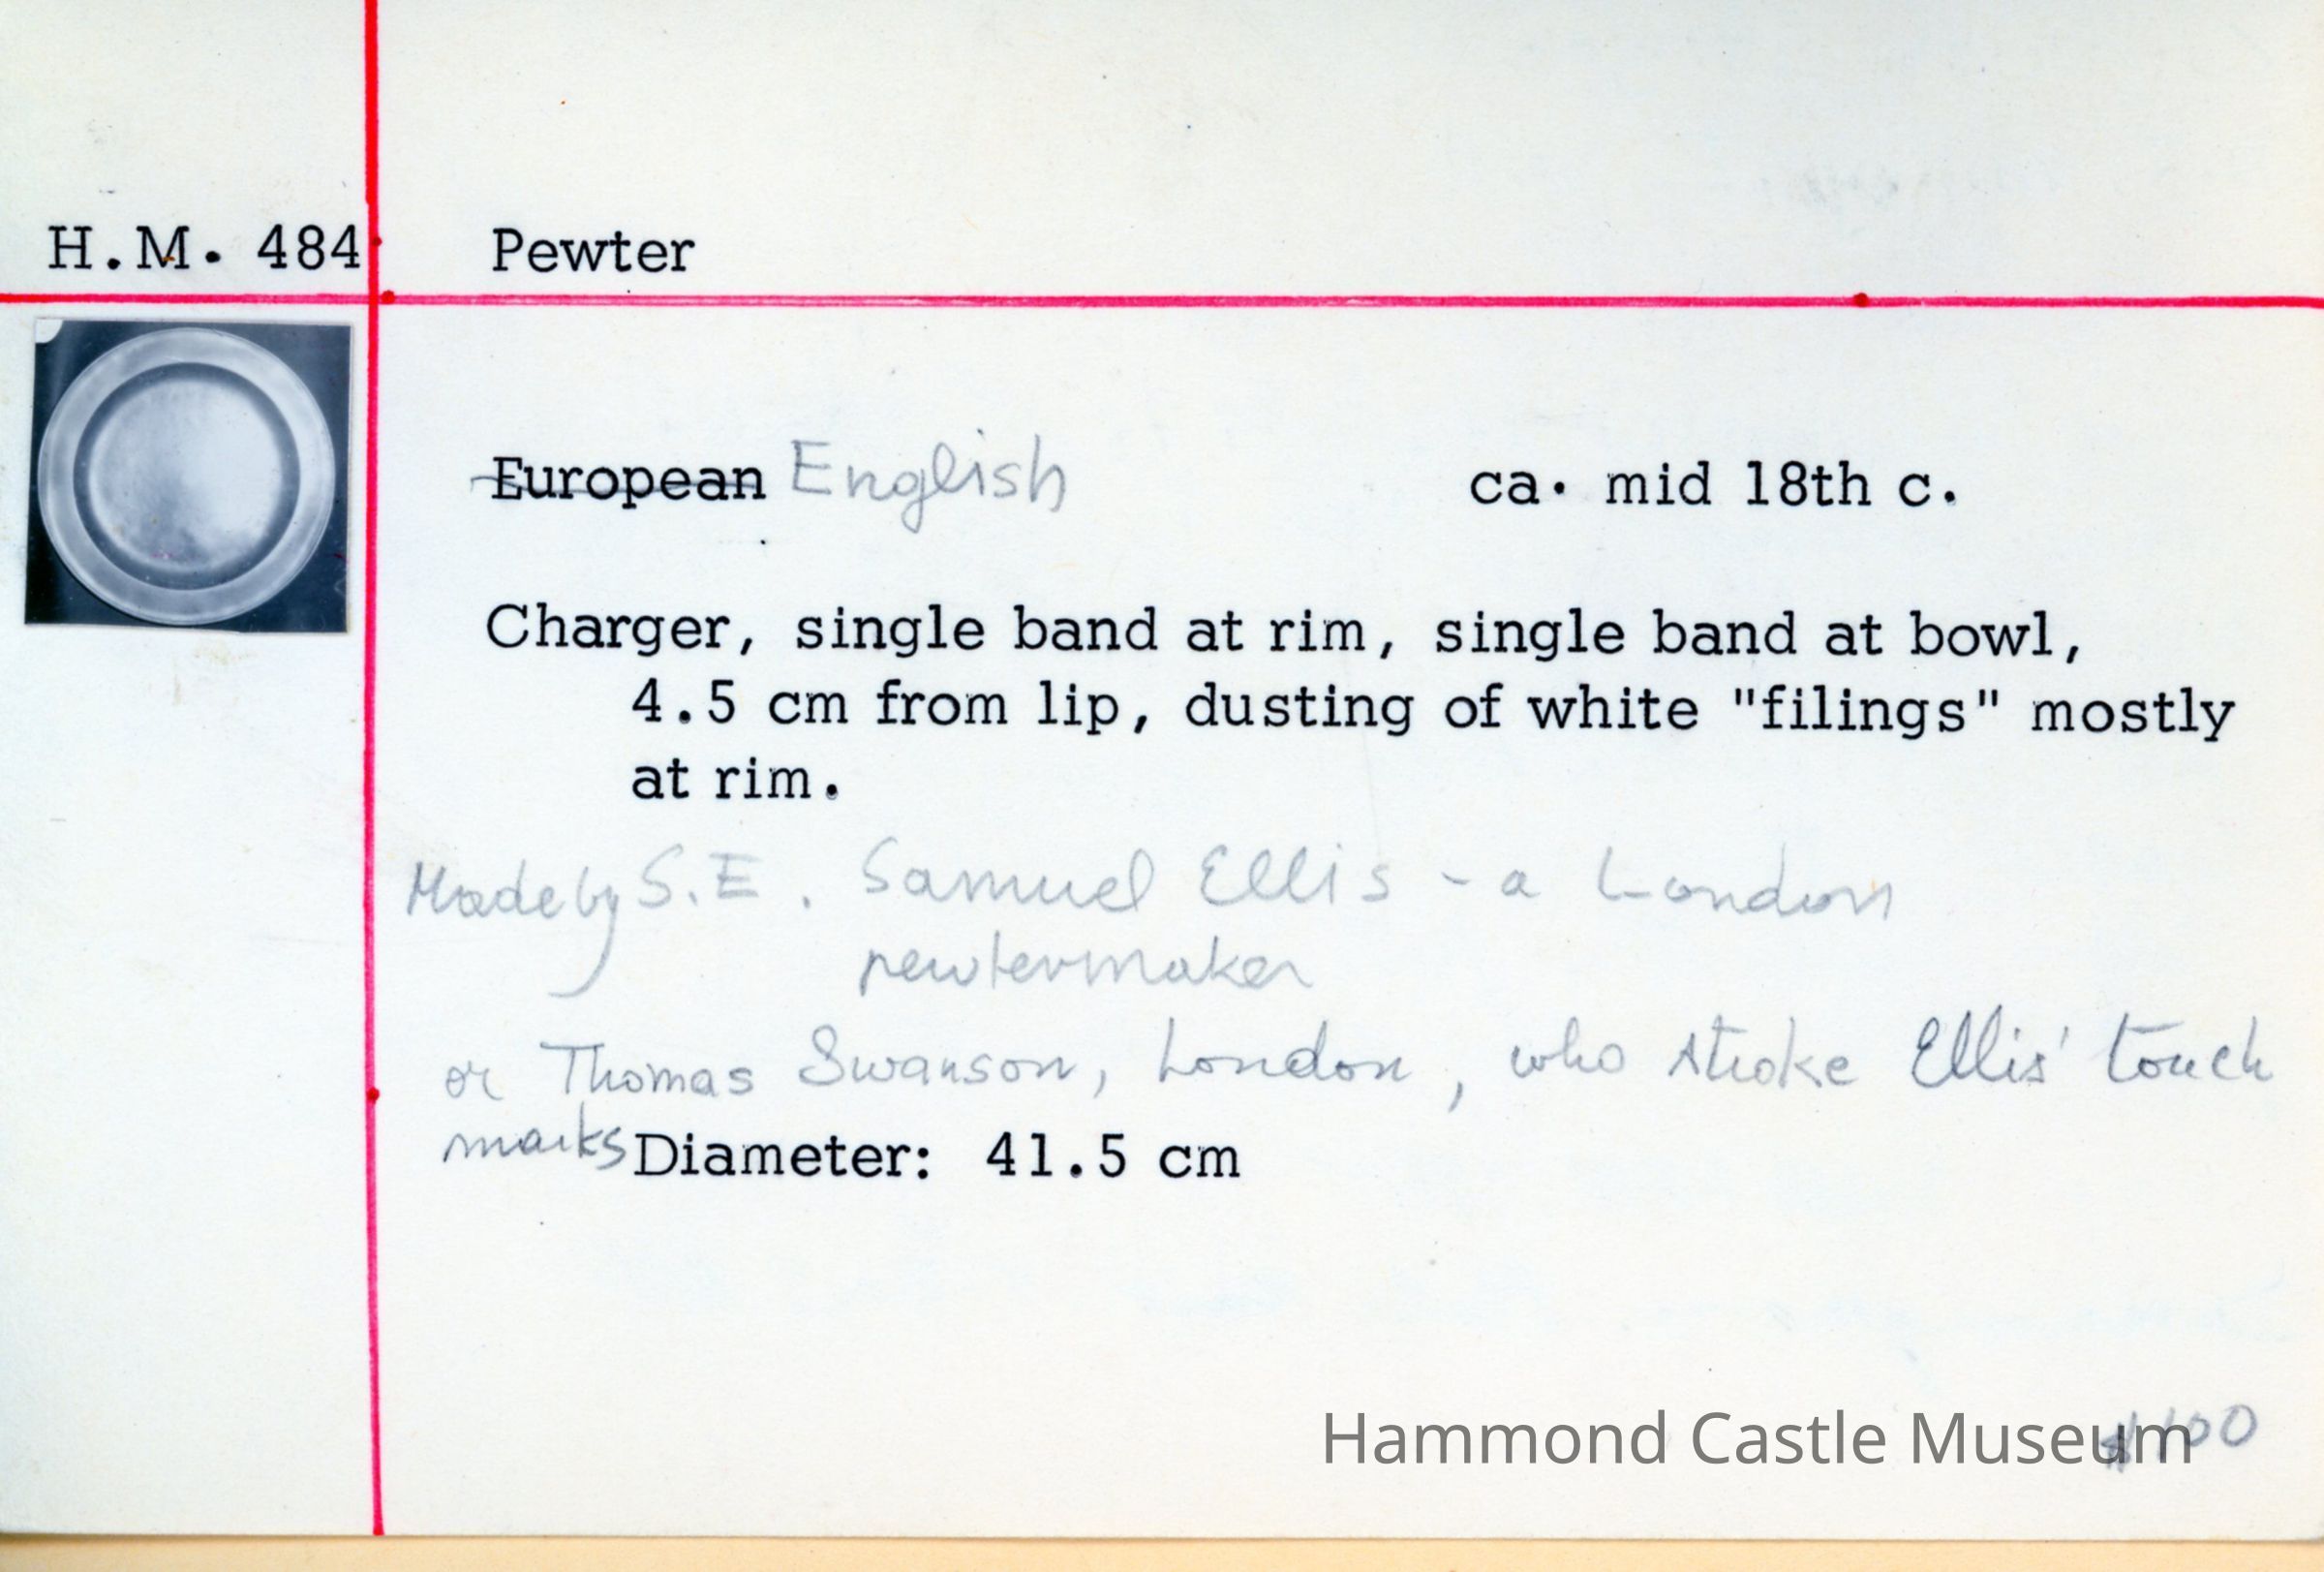 H.M. 484 Pewter
European English ca. mid 18th c.
Charger, single band at rim, single band at bowl,
4.5 cm from lip, dusting of white "filings" mostly
at rim.
Made by S.E. Samuel Ellis - a London
pewtermaker
or Thomas Swanson, London, who stroke Ellis' touch
marks Diameter: 41.5 cm
Hammond Castle Museum
$100